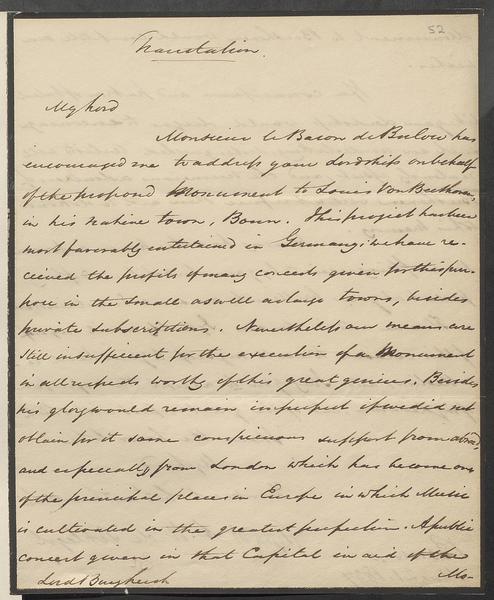 52
Translation.
My Lord
Monsieur le Baron de Bulow has
encouraged me to address your Lordship on behalf
of the proposed Monument to Louis Von Beethoven,
in his native town, Bonn. This project has been
most favorably entertained in Germany; we have re-
cieved the profits of many concerts given for this pur-
pose in the small as well as large towns, besides
private subscriptions. Nevertheless our means are
still insufficient for the execution of a Monument
in all respects worthy of this great genius. Besides
his glory would remain imperfect if we did not
obtain for it some conspicuous support from abroad,
and especially from London which has become one
of the principal places in Europe in which Music
is cultivated in the greatest perfection. A public
concert given in that Capital in aid of the
Lord Burghersh Mo-